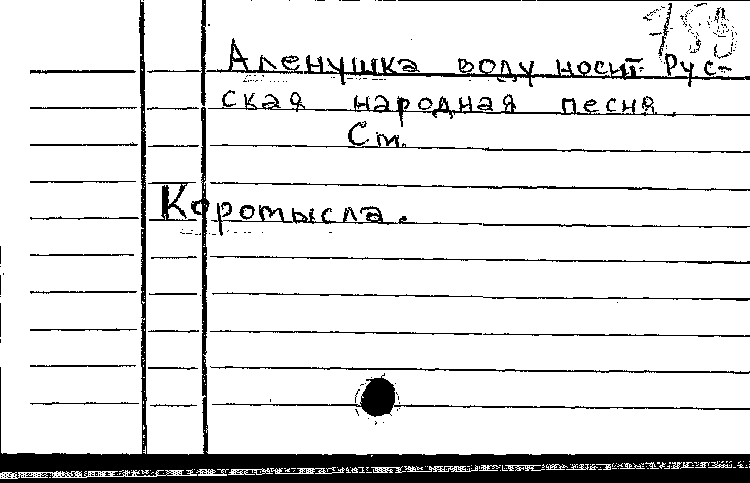 759
Аленушка воду носит. Рус-
ская народная песня.
Ст.
Коромысла.